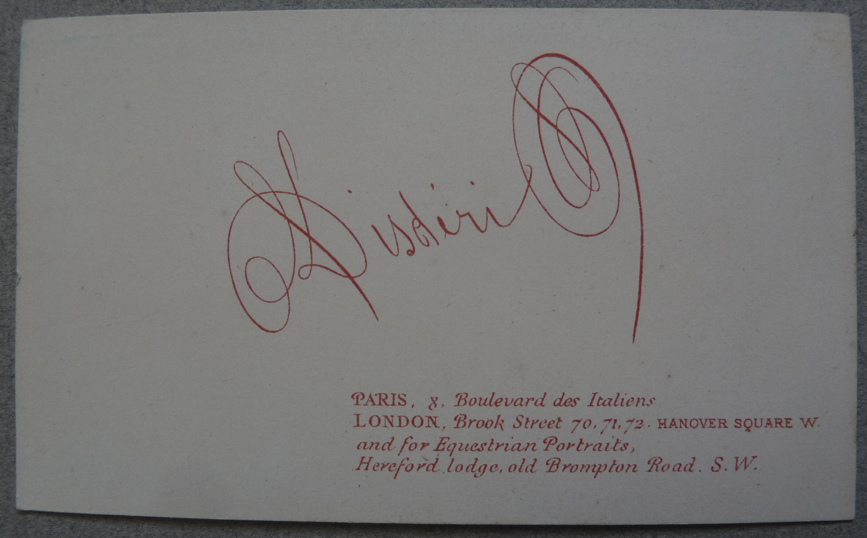 Disdéri
PARIS, 8, Boulevard des Italiens
LONDON, Brook Street 70, 71, 72. HANOVER SQUARE W.
and for Equestrian Portraits,
Hereford lodge, old Brompton Road. S. W.